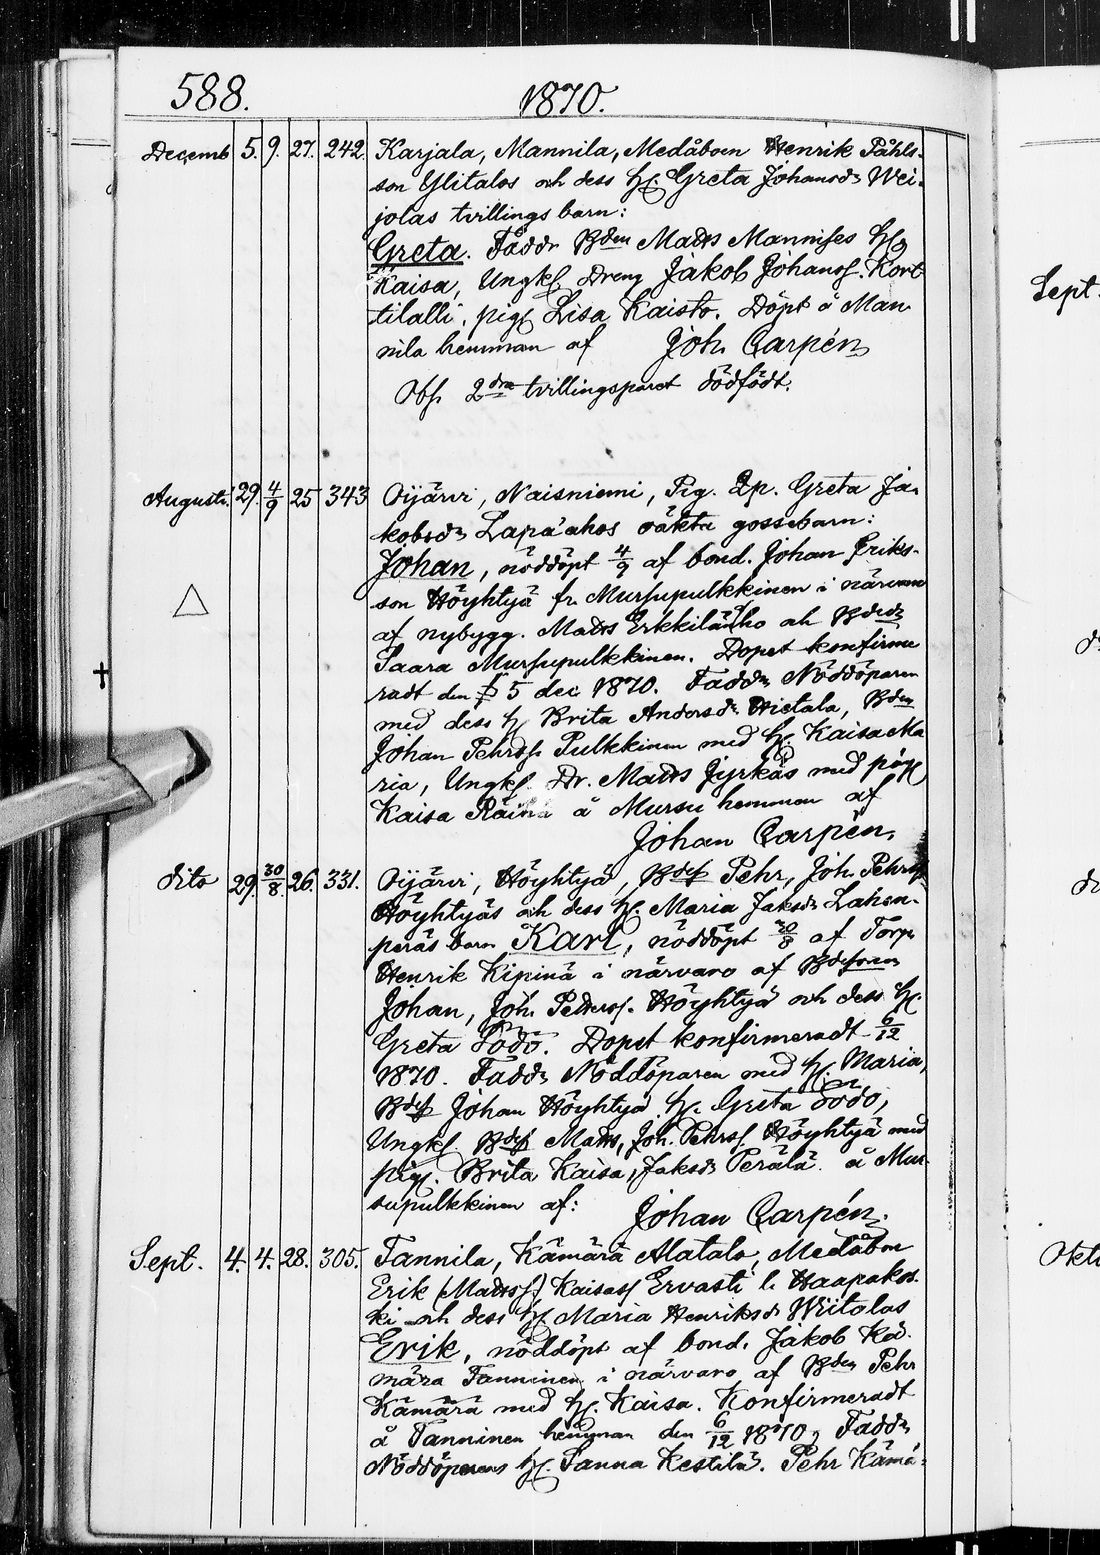 588. 1870.
Decemb 5. 9. 27. 242. Karjala, Mannila, Medåboen Henrik Påhls-
son Ylitalos och dess h. Greta Johansdr Wei-
jolas tvillingsbarn:
Greta. Faddr Bden Matts Mannises h.
Kaisa, Ungk. Dreng Jakob Johanss. Kort
tilalli, pig. Lisa Kaisto. Döpt å Man
nila hemman af Joh. Carpén
Obs. 2dra tvillingsparet dödfödt.
Augusti 29. 4/9 25 343 Oijärvi, Naisniemi, Pig. Qp. Greta Ja-
kobsdr Lapa'ahos oäkta gossebarn:
Johan, nöddöpt 4/9 af bond. Johan Eriks-
son Höyhtyä fr. Mursupulkkinen i närvaro
af nybygg. Matts Erkkilänho och
Saara Mursupulkkinen. Dopet konfirme
radt den 5 dec 1870. Faddr Nöddöparen
med dess h. Brita Andersdr Hietala, Bden
Johan Pehrss. Pulkkinen med h. Kaisa Ma
ria, Ungk. Dr. Matts Jyrkäs med pig.
Kaisa Räinä å Mursu hemman af
Johan Carpén.
dito 29. 30/8. 26. 331. Oijärvi, Höyhtyä, Bds Pehr, Joh. Pehrss
Höyhtyäs och dess h. Maria Jaksdr Lahen-
peräs barn Karl, nöddöpt 30/8 af Torp.
Henrik Kipinä i närvaro af
Johan, Joh. Petterss. Höyhtyä och dess h.
Greta Södö. Dopet konfirmeradt 6/12
1870. Faddr Nöddöparen med h. Maria,
Bds Johan Höyhtyä h. Greta Södö,
Ungk. Bds Matts, Joh. Pehrss. Höyhtyä med
pig. Brita Kaisa, Jaksdr Perälä å Mur-
supulkkinen af: Johan Carpén.
Sept. 4. 4. 28. 305. Tannila, Kämärä Alatalo, Medåbon
Erik (Mattss.) Kaisas Ervasti l. Haapakos-
ki och dess h. Maria Henriksdr Wiitalas
Erik, nöddöpt af bond. Jakob Kä-
mära Tanninen i närvaro af Bden Pehr
Kämärä med h. Kaisa. Konfirmeradt
å Tanninen hemman den 6/12 1870, Faddr
Nöddöparens h. Sanna Kestilä. Pehr Kämä-
Sept.
Okt